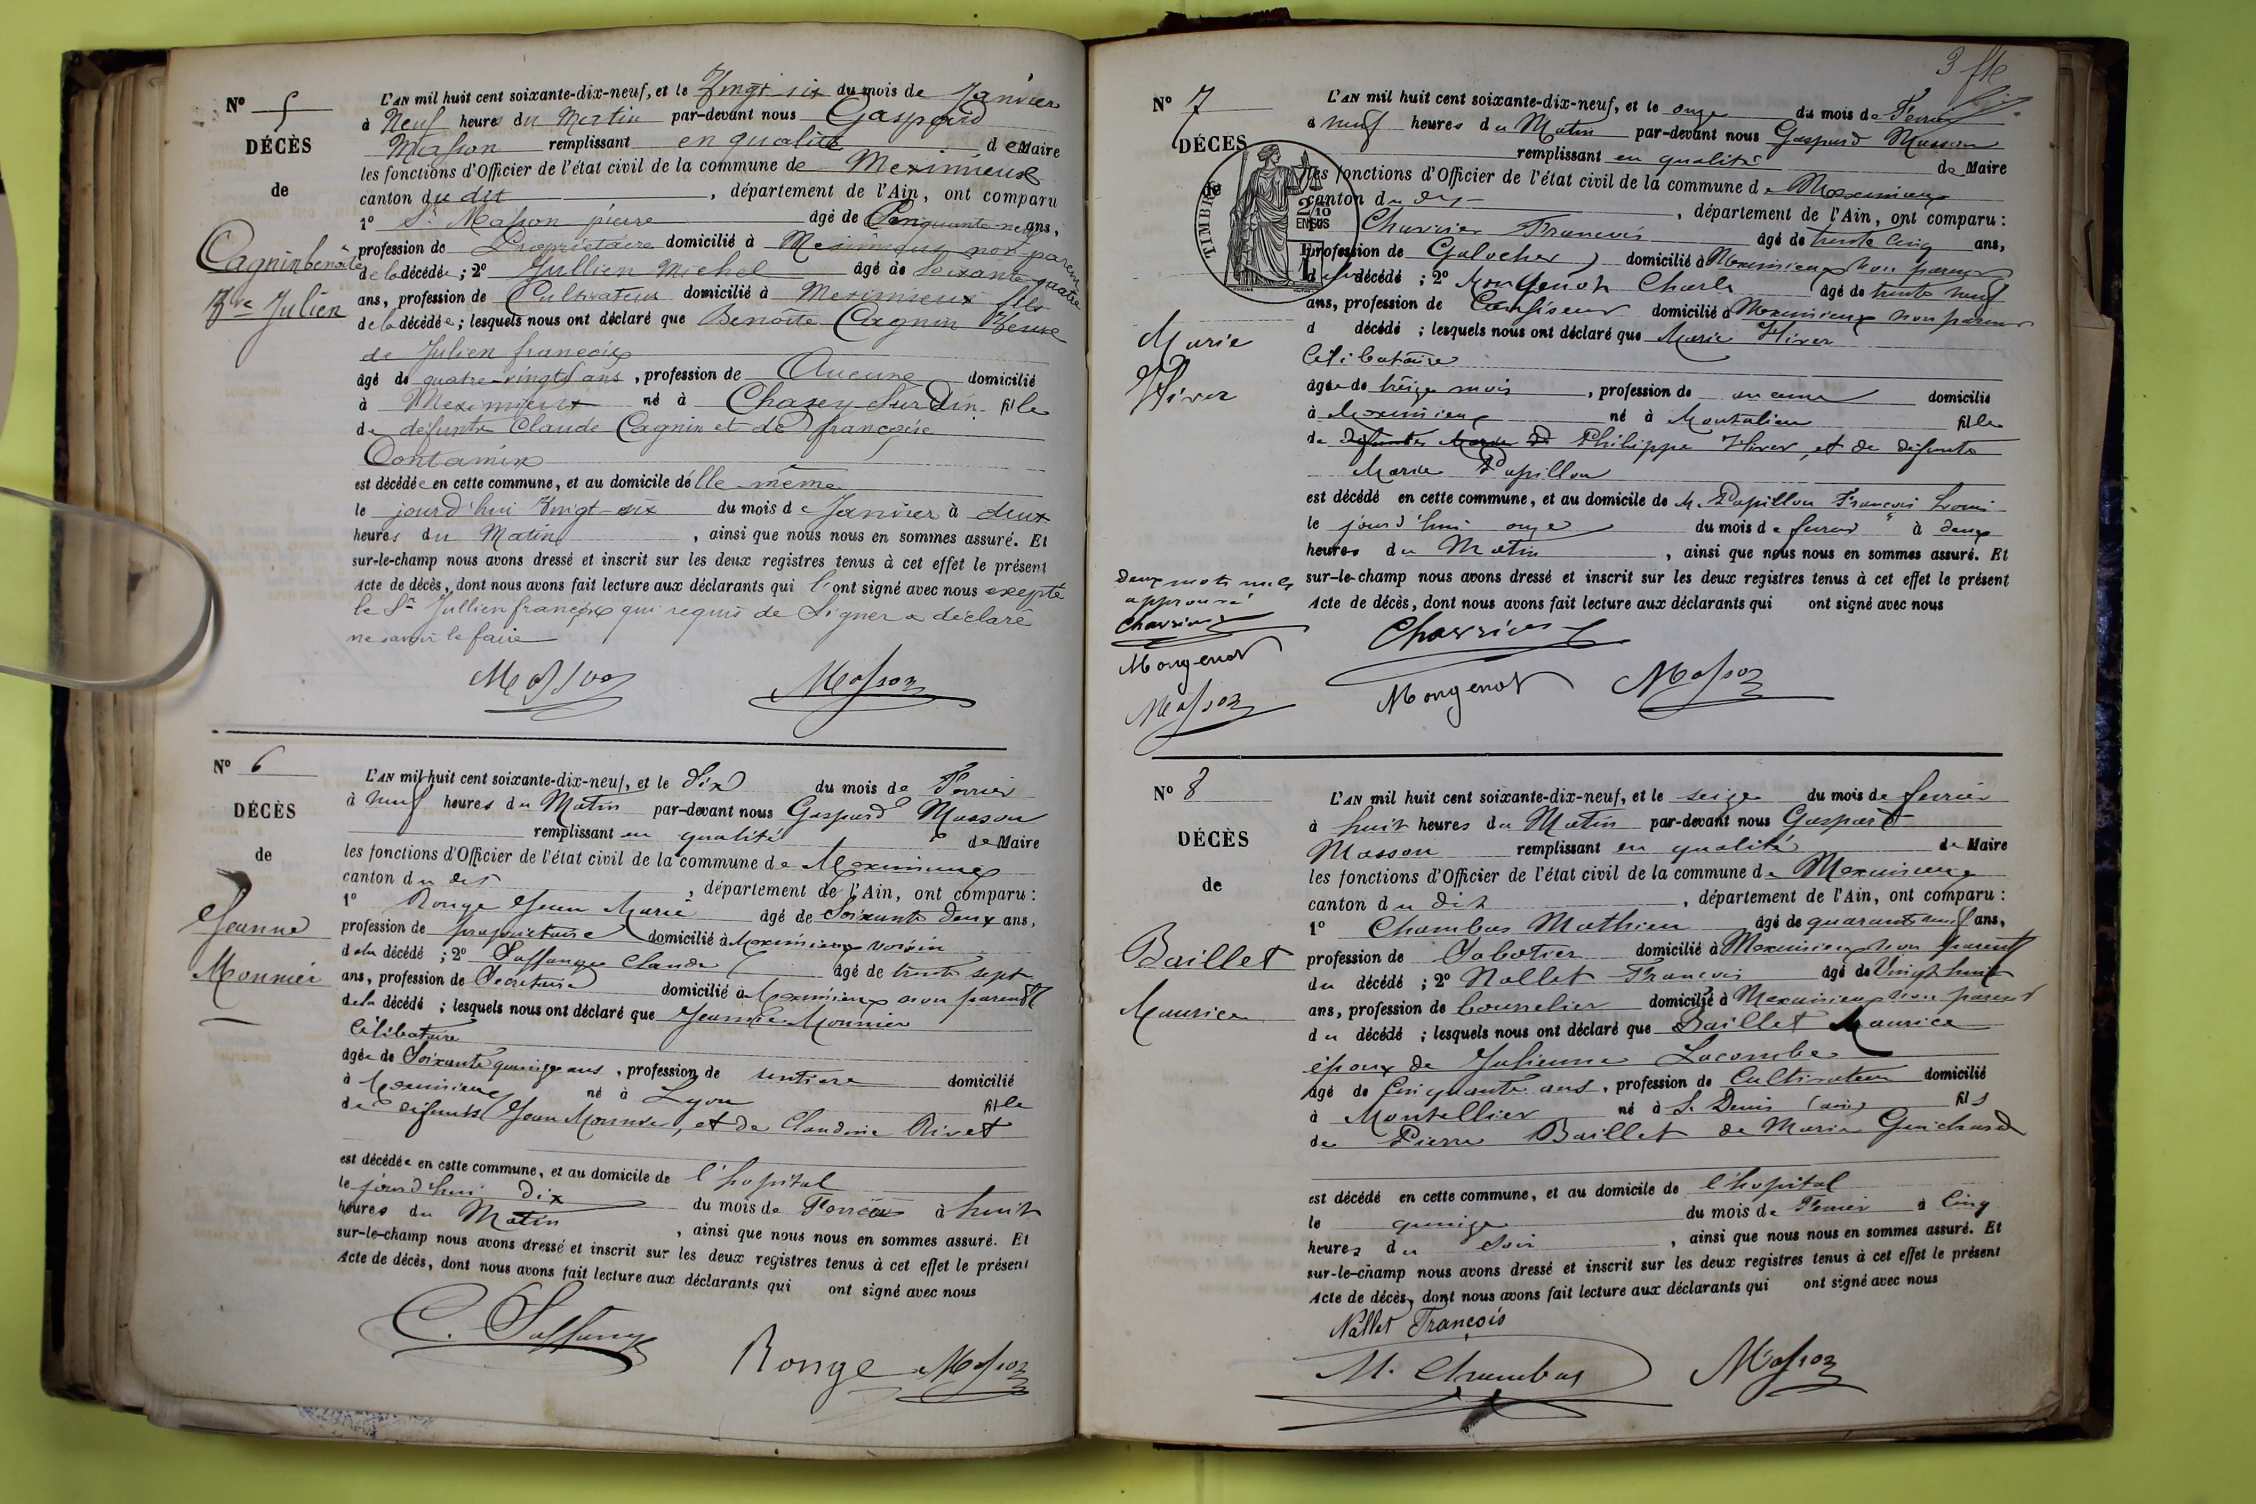 N° 5
DÉCÈS
de
Cagnin benoîte
Vve Julien
L'AN mil huit cent soixante-dix-neuf, et le Vingt six du mois de Janvier
à Neuf heures du Matin par-devant nous Gaspard
Masson remplissant en qualité de Maire
les fonctions d'Officier de l'état civil de la commune de Meximieux
canton du dit, département de l'Ain, ont comparu
1° Sr Masson pierre âgé de Cinquante-neuf ans,
profession de Propriétaire domicilié à Meximieux non parent
de la décédée ; 2° Jullien Michel âgé de Soixante quatre
ans, profession de Cultivateur domicilié à Meximieux fils
de la décédée ; lesquels nous ont déclaré que Benoîte Cagnin Veuve
de Julien françois
âgé de quatre-vingts ans, profession de Aucune domicilié
à Meximieux né à Chazey Sur Ain fille
de défunts Claude Cagnin et de françoise
Contamin
est décédée en cette commune, et au domicile d'elle même
le jourd'hui Vingt-six du mois de Janvier à deux
heures du Matin, ainsi que nous nous en sommes assuré. Et
sur-le-champ nous avons dressé et inscrit sur les deux registres tenus à cet effet le présent
Acte de décès, dont nous avons fait lecture aux déclarants qui l'ont signé avec nous excepté
le Sr Jullien françois qui requis de Signer a déclaré
ne savoir le faire
Masson Masson
N° 6
DÉCÈS
de
Jeanne
Monnier
L'AN mil huit cent soixante-dix-neuf, et le Dix du mois de Fevrier
à neuf heures du Matin par-devant nous Gaspard Masson
remplissant en qualité de Maire
les fonctions d'Officier de l'état civil de la commune de Meximieux
canton du dit, département de l'Ain, ont comparu :
1° Ronge Jean Marie âgé de Soixante deux ans,
profession de propriétaire domicilié à Meximieux voisin
de la décédé ; 2° Claude âgé de trente sept
ans, profession de Secretaire domicilié à Meximieux non parents
de la décédé ; lesquels nous ont déclaré que Jeanne Monnier
Célibataire
âgée de Soixante quinze ans, profession de rentière domicilié
à Meximieux né à Lyon fille
de défunts Jean Monnier, et de Claudine Rivet
est décédée en cette commune, et au domicile de l'hopital
le jourd'hui dix du mois de Fevrier à huit
heures du Matin, ainsi que nous nous en sommes assuré. Et
sur-le-champ nous avons dressé et inscrit sur les deux registres tenus à cet effet le présent
Acte de décès, dont nous avons fait lecture aux déclarants qui ont signé avec nous
Ronge Masson
3
N° 7
DÉCÈS
de
TIMBRE
2/10
EN SUS
Marie
Hiver
L'AN mil huit cent soixante-dix-neuf, et le onze du mois de Fevrier
à neuf heures du Matin par-devant nous Gaspard Masson
remplissant en qualité de Maire
les fonctions d'Officier de l'état civil de la commune de Meximieux
canton du dit, département de l'Ain, ont comparu :
Charrier Francois âgé de trente cinq ans,
profession de Galocher domicilié à Meximieux non parent
de la décédé ; 2° Mongenot Charle âgé de trente neuf
ans, profession de Confiseur domicilié à Meximieux non parent
d décédé ; lesquels nous ont déclaré que Marie Hiver
Célibataire
âgée de treize mois, profession de aucune domicilié
à Meximieux né à Montalieu fille
de Philippe Hiver, et de défunte
Marie Papillon
est décédé en cette commune, et au domicile de M. Papillon Francois Louis
le jourd'hui onze du mois de fevrier à deux
heures du Matin, ainsi que nous nous en sommes assuré. Et
sur-le-champ nous avons dressé et inscrit sur les deux registres tenus à cet effet le présent
Acte de décès, dont nous avons fait lecture aux déclarants qui ont signé avec nous
deux mots nuls
approuvé
Charrier
Mongenot
Masson
Charrier
Mongenot Masson
N° 8
DÉCÈS
de
Baillet
Maurice
L'AN mil huit cent soixante-dix-neuf, et le seize du mois de fevrier
à huit heures du Matin par-devant nous Gaspard
Masson remplissant en qualité de Maire
les fonctions d'Officier de l'état civil de la commune de Meximieux
canton du dit, département de l'Ain, ont comparu :
1° Chambas Mathieu âgé de quarante neuf ans,
profession de Sabotier domicilié à Meximieux non parent
du décédé ; 2° Nallet Francois âgé de Vingt huit
ans, profession de bourrelier domicilié à Meximieux non parent
du décédé ; lesquels nous ont déclaré que Baillet Maurice
époux de Julienne Lacombe
âgé de Cinquante ans, profession de Cultivateur domicilié
à Montellier né à St Denis (ain) fils
de Pierre Baillet de Marie Guichard
est décédé en cette commune, et au domicile de l'hopital
le quinze du mois de Fevrier à Cinq
heures du Soir, ainsi que nous nous en sommes assuré. Et
sur-le-champ nous avons dressé et inscrit sur les deux registres tenus à cet effet le présent
Acte de décès, dont nous avons fait lecture aux déclarants qui ont signé avec nous
Nallet François
M. Chambas Masson